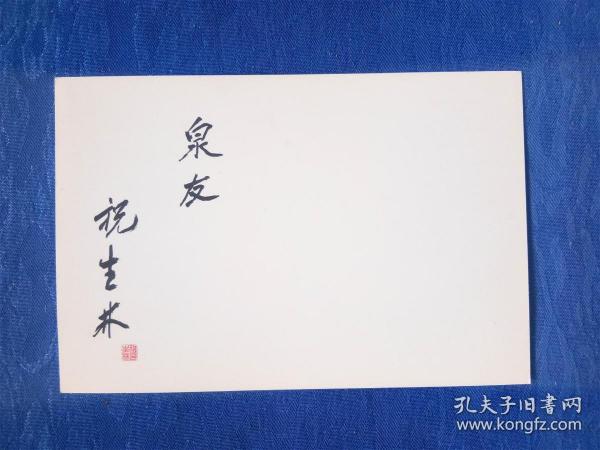 泉友
祝生林
孔夫子旧書网
www.kongfz.com